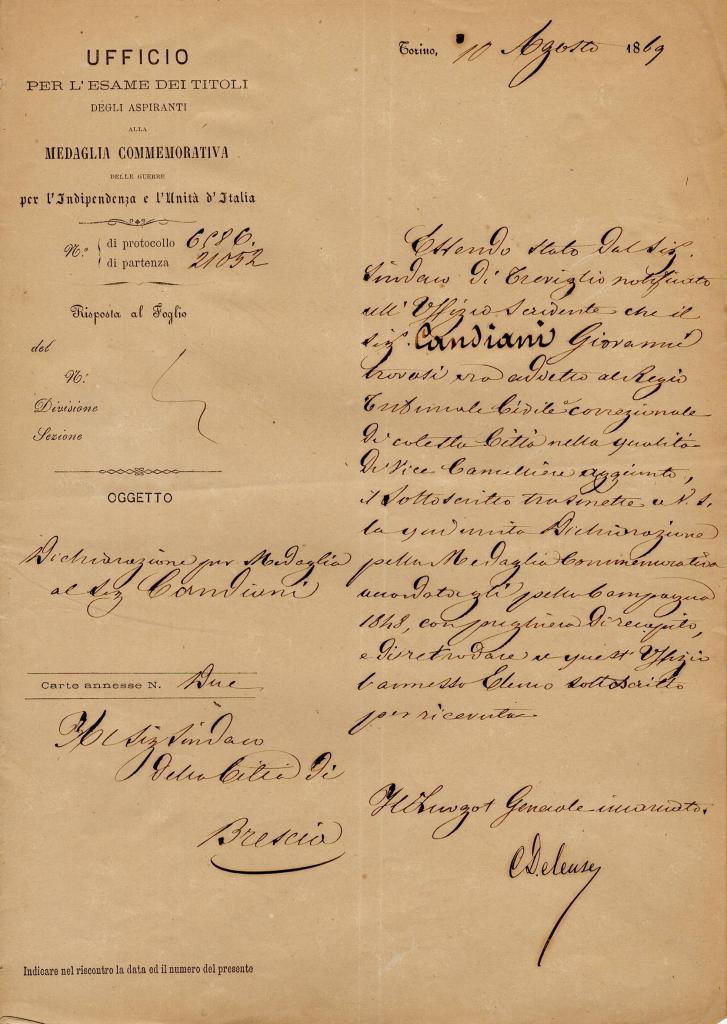 UFFICIO
PER L'ESAME DEI TITOLI
DEGLI ASPIRANTI
ALLA
MEDAGLIA COMMEMORATIVA
DELLE GUERRE
per l'Indipendenza e l'Unità d'Italia
N.º di protocollo 6586.
di partenza 21052
Risposta al Foglio
del
N.º
Divisione
Sezione
OGGETTO
Dichiarazione per Medaglia
al Sig Candiani
Carte annesse N. Due
Al Sig Sindaco
Della Città di
Brescia
Indicare nel riscontro la data ed il numero del presente
Torino, 10 Agosto 1869
Essendo stato dal Sig.
Sindaco di Treviglio notificato
all' Uffizio scrivente che il
Sig. Candiani Giovanni
trovasi ora addetto al Regio
Tribunale Civile correzionale
di cotesta Città nella qualità
di Vice Cancelliere aggiunto,
il Sottoscritto trasmette a V. S.
la qui unita Dichiarazione
pella Medaglia Commemorativa
accordatagli pella Campagna
1848, con preghiera di recapito,
e di retrodare a quest' Uffizio
l'annesso Elenco sottoscritto
per ricevuta
Il Luogot Generale incaricato.